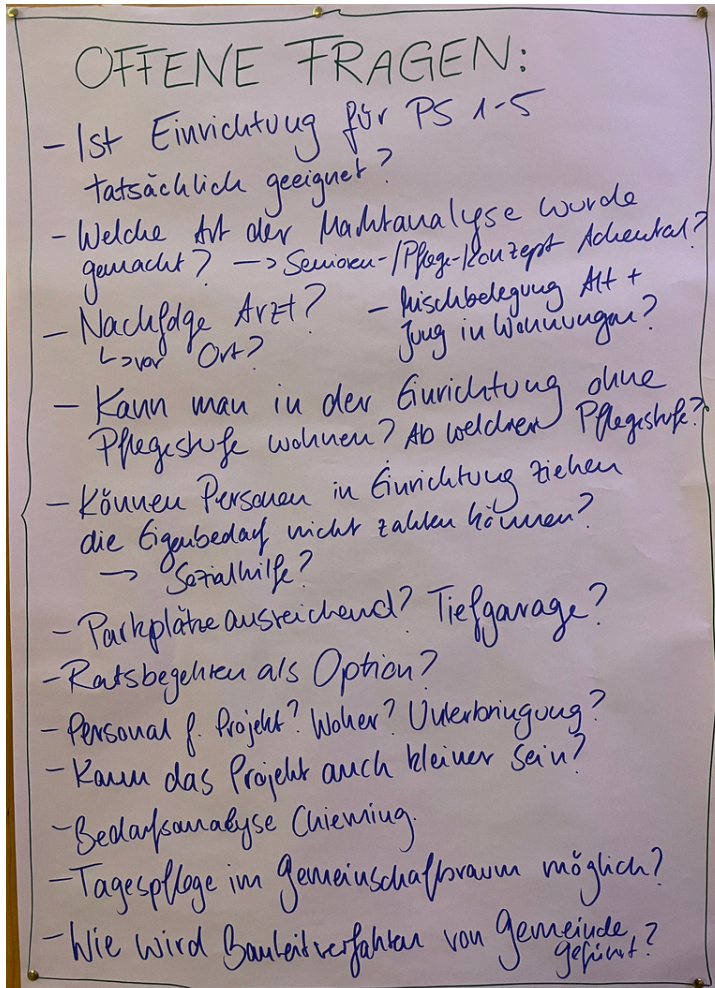 OFFENE FRAGEN:
- Ist Einrichtung für PS 1-5
tatsächlich geeignet?
- Welche Art der Marktanalyse wurde
gemacht? → Senioren-/Pflege-Konzept Achental?
- Nachfolge Arzt?
↳ vor Ort?
- Mischbelegung Alt +
Jung in Wohnungen?
- Kann man in der Einrichtung ohne
Pflegestufe wohnen? Ab welcher Pflegestufe?
- Können Personen in Einrichtung ziehen
die Eigenbedarf nicht zahlen können?
→ Sozialhilfe?
- Parkplätze ausreichend? Tiefgarage?
- Ratsbegehren als Option?
- Personal f. Projekt? Woher? Unterbringung?
- Kann das Projekt auch kleiner sein?
- Bedarfsanalyse Chieming.
- Tagespflege im Gemeinschaftsraum möglich?
- Wie wird Bauleitverfahren von Gemeinde
geführt?